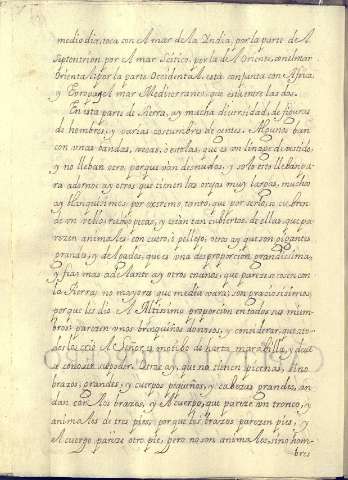 medio dia, toca con el mar de la Yndia, por la parte de el
Septentrion, por el mar Scitico, por la de el Oriente, con el mar
Oriental, por la parte Occidental, està conjunta con Africa,
y Europa, y el mar Mediterraneo, que està entre las dos.
En esta parte de tierra, ay mucha diversidad, de figuras
de hombres, y varias costumbres de gentes. Algunos ban
con unas bandas, que es un linage de vestido,
y no lleban otro, porque van desnudos, y solo esto lleban pa-
ra adorno: ay otros que tienen las orejas muy largas, mucho
ay blanquisimos por extremo, tanto, que por serlo, se cubren
de un vello, y estàn tan cubiertos, de ellas, que pa-
rezen animales con cuero, ò pellejo, otro ay que son gigantes
grandes, y de feados, que es una desproporcion grandissima,
y fea, mas adelante ay otros enanos, que parezen cosen con
la tierra, no mayores que media vara, son graciosisimos
porque les dio el Altisimo proporcion en todos sus miem-
bros parezen unos brinquiños donosos, y considerar, que to-
dos los criò el Señor, a motibo de harta marabilla, y de que
se conosca su poder. Otros ay, que no tienen piernas, sino
brazos, grandes, y cuerpos pequeños, y cabezas grandes, an-
dan con los brazos, y el cuerpo, que pareze un tronco, y
animales de tres pies, porque los brazos parezen pies, y
el cuerpo, pareze otro pie, pero no son animales, sino hom-
bres